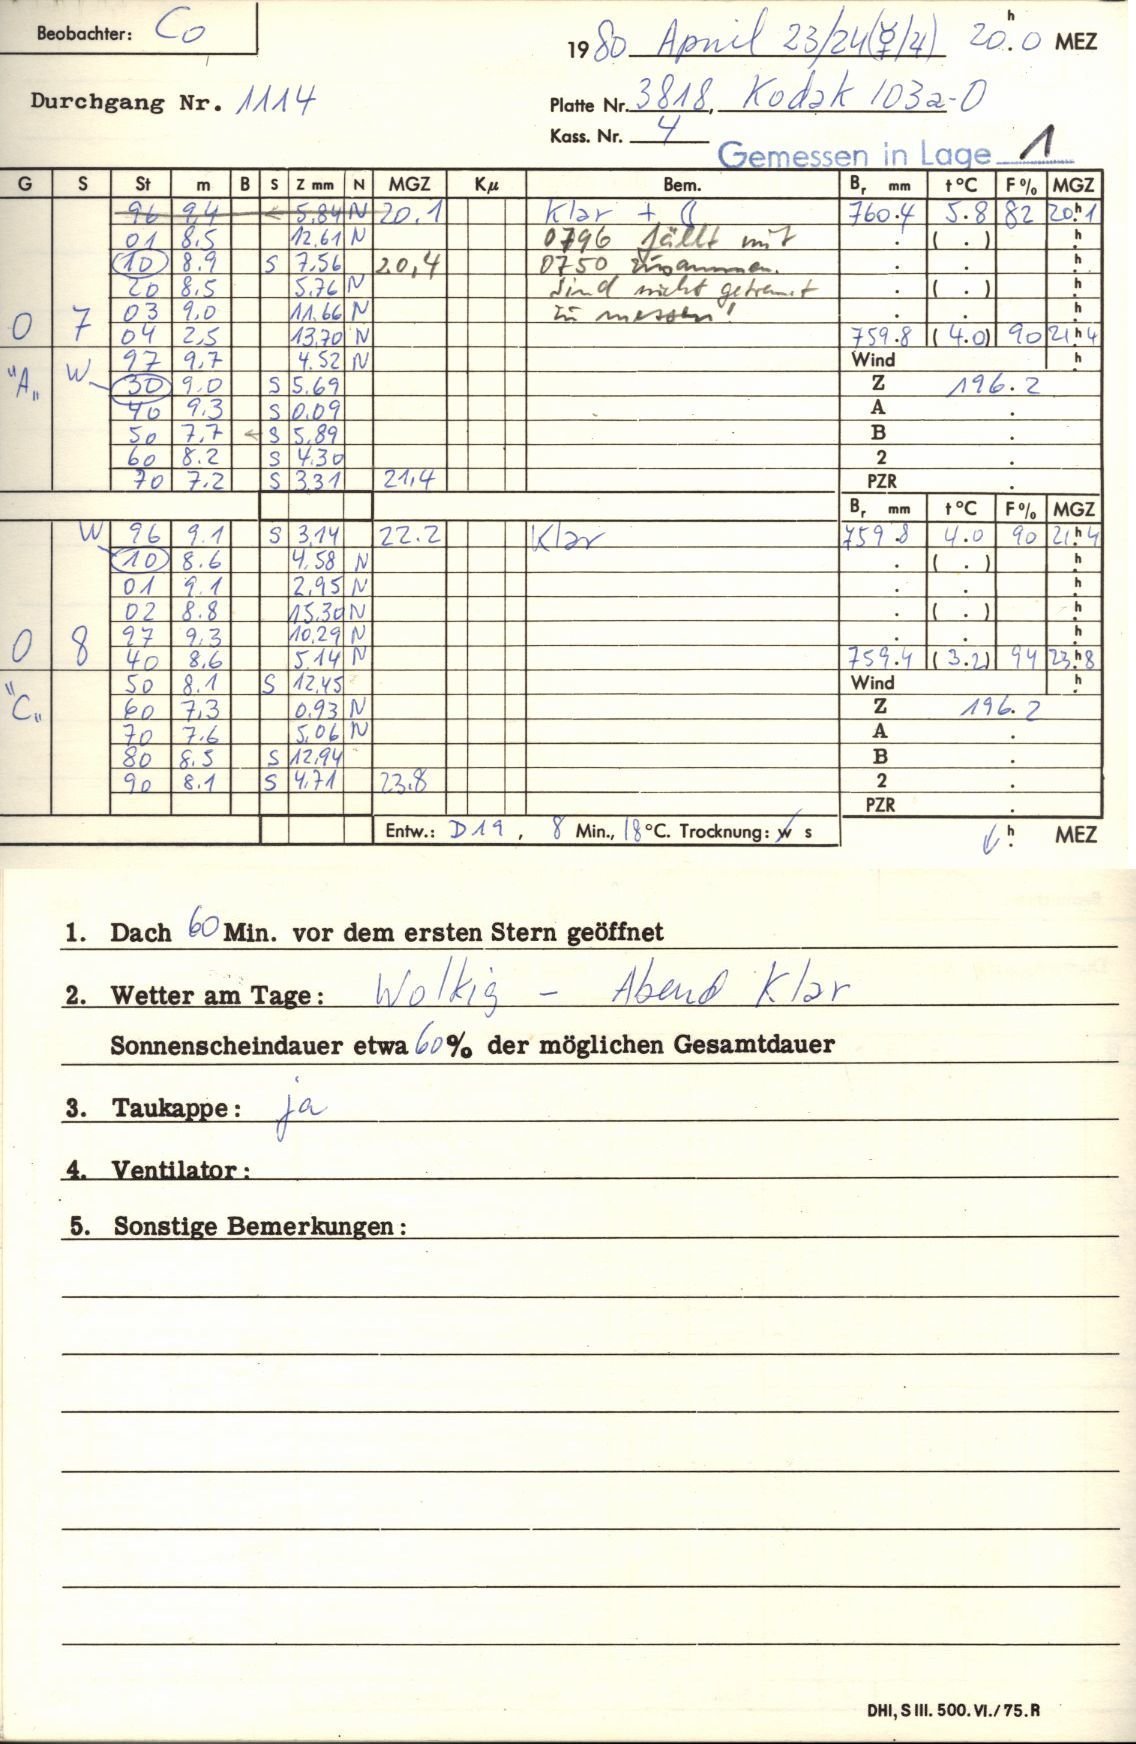 Beobachter: Co
1980 April 23/24 (☿/♃) 20.0 h MEZ
Durchgang Nr. 1114
Platte Nr. 3818, Kodak 103a-O
Kass. Nr. 4
Gemessen in Lage 1
G S St m B S Z mm N MGZ Kμ Bem. Br mm t°C F% MGZ
96 9,4 ← 5,84 N 20.1 Klar + ☾ 760.4 5.8 82 20.h1
01 8,5 12,61 N 0796 fällt mit . ( . ) h
10 8.9 S 7,56 20,4 0750 zusammen. . . h
20 8,5 5,76 N Sind nicht getrennt . ( . ) h
03 9,0 11,66 N zu messen! . . h
0 7 04 2,5 13,70 N 759.8 (4.0) 90 21.h4
97 9,7 4.52 N Wind h
"A" W 30 9.0 S 5.69 Z 196.2
40 9,3 S 0,09 A .
50 7,7 ← S 5,89 B .
60 8.2 S 4,30 2 .
70 7,2 S 3,31 21,4 PZR .
Br mm t°C F% MGZ
W 96 9.1 S 3,14 22.2 Klar 759.8 4.0 90 21.h4
10 8.6 4,58 N . ( . ) h
01 9.1 2,95 N . . h
02 8.8 15,30 N . ( . ) h
97 9,3 10,29 N . . h
0 8 40 8,6 5,14 N 759.4 (3.2) 94 23.h8
50 8.1 S 12,45 Wind h
"C" 60 7,3 0,93 N Z 196.2
70 7.6 5,06 N A .
80 8,5 S 12,94 B .
90 8.1 S 4,71 23.8 2 .
PZR .
Entw.: D19, 8 Min., 18°C. Trocknung: w s h MEZ
1. Dach 60 Min. vor dem ersten Stern geöffnet
2. Wetter am Tage: Wolkig – Abend Klar
Sonnenscheindauer etwa 60% der möglichen Gesamtdauer
3. Taukappe: ja
4. Ventilator:
5. Sonstige Bemerkungen:
DHI, S III. 500. VI./75. R